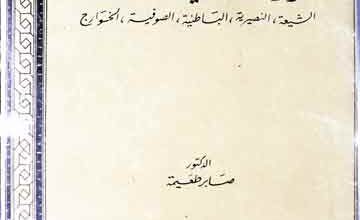 الشيعة، النصيرية، الباطنية، الصوفية، الخوارج
الدكتور
صابر طعيمة